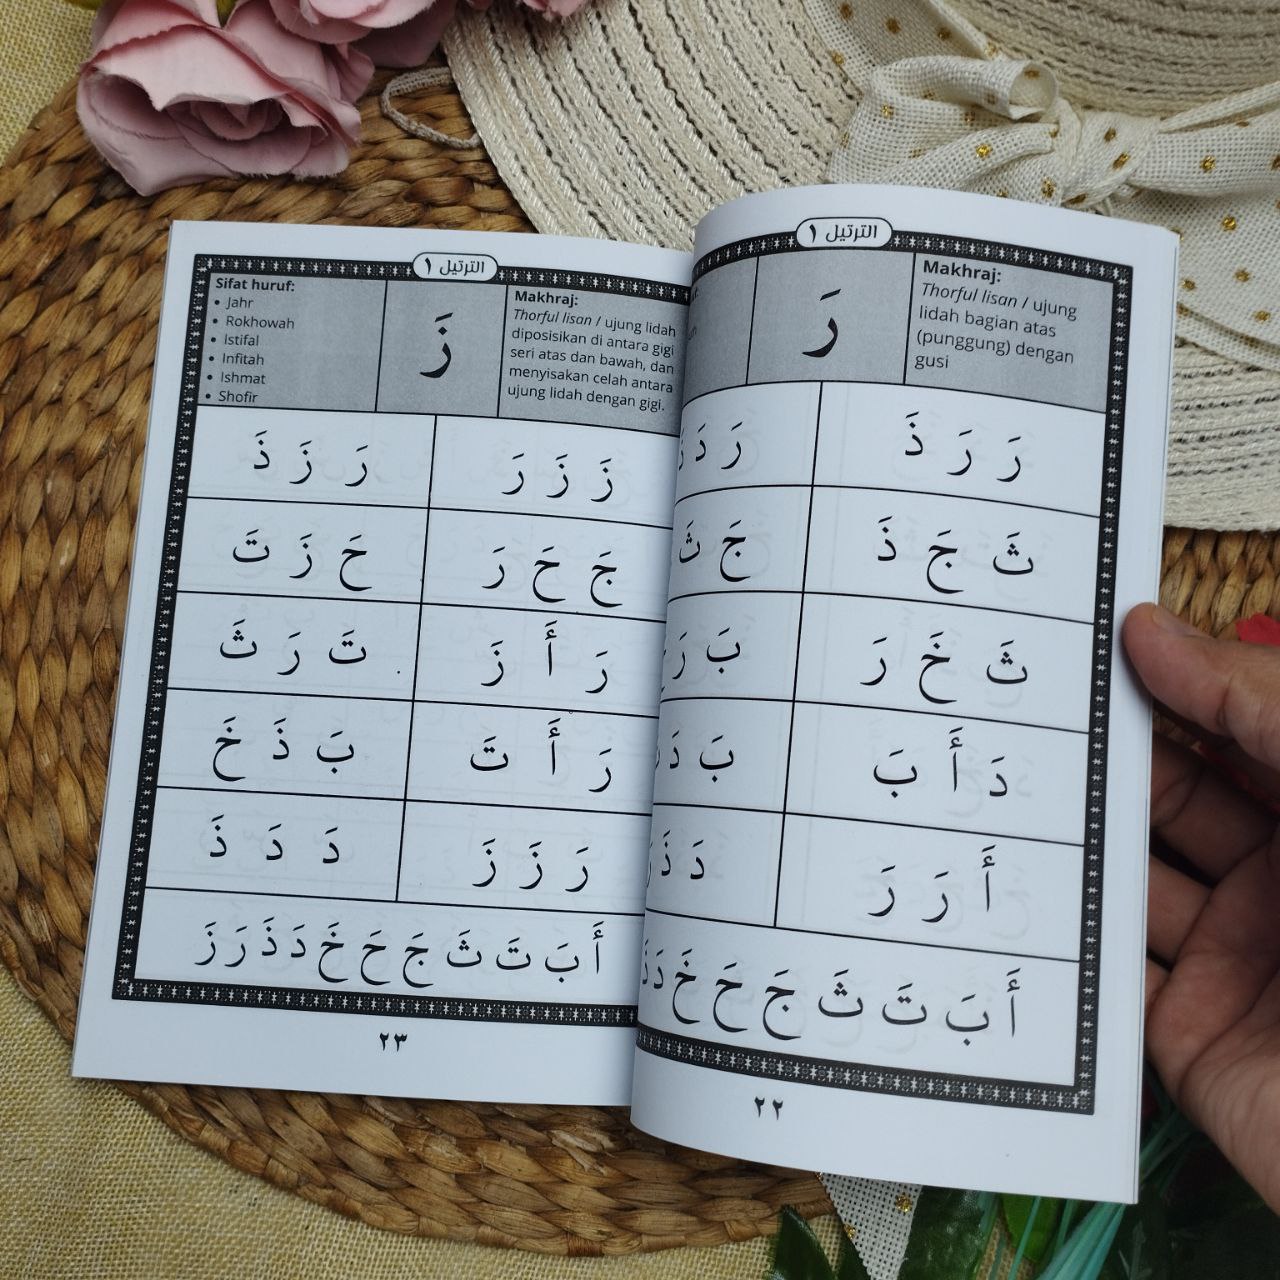 الترتيل ١
Makhraj:
Thorful lisan / ujung
lidah bagian atas
(punggung) dengan
gusi
رَ
رَ رَ ذَ
رَ دَ
ثَ جَ ذَ
جَ ثَ
ثَ خَ رَ
بَ رَ
دَ أَ بَ
بَ دَ
أَ رَ رَ
دَ ذَ
أَ بَ تَ ثَ جَ حَ خَ دَ ذَ
٢٢
الترتيل ١
Makhraj:
Thorful lisan / ujung lidah
diposisikan di antara gigi
seri atas dan bawah, dan
menyisakan celah antara
ujung lidah dengan gigi.
زَ
Sifat huruf:
• Jahr
• Rokhowah
• Istifal
• Infitah
• Ishmat
• Shofir
زَ زَ رَ
رَ زَ ذَ
جَ حَ رَ
حَ زَ تَ
رَ أَ زَ
تَ رَ ثَ
رَ أَ تَ
بَ ذَ خَ
رَ زَ زَ
دَ دَ ذَ
أَ بَ تَ ثَ جَ حَ خَ دَ ذَ رَ زَ
٢٣